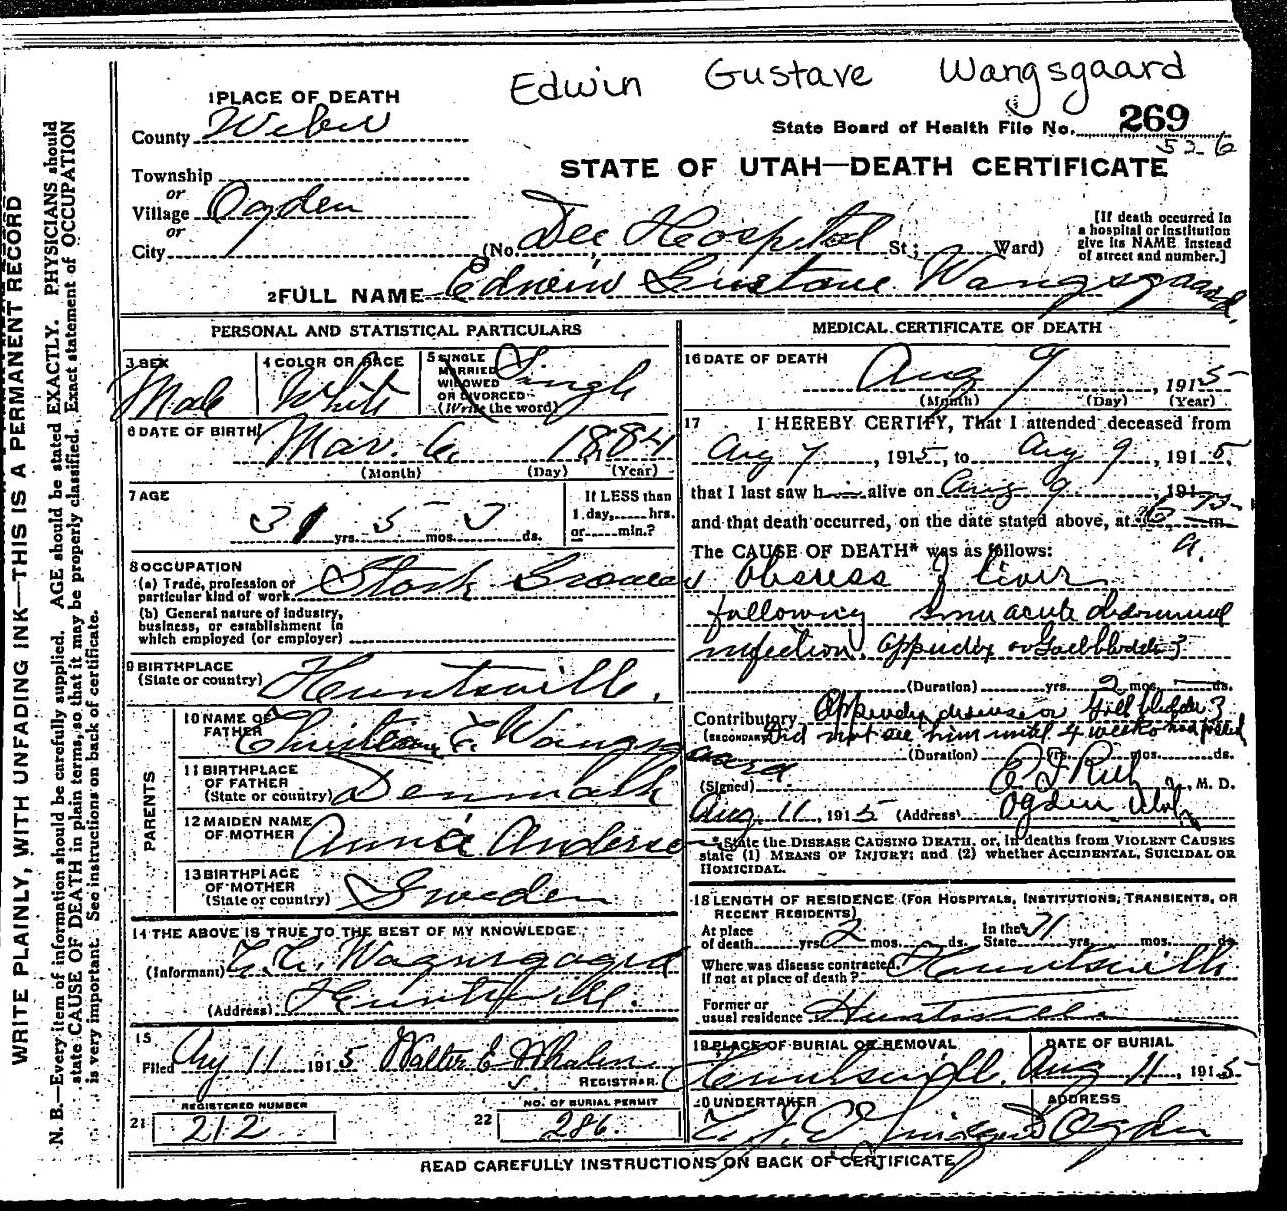 Edwin Gustave Wangsgaard
1 PLACE OF DEATH
County Weber
State Board of Health File No. 269
526
STATE OF UTAH—DEATH CERTIFICATE
Township
or
Village Ogden
or
City
(No. Dee Hospital St.; Ward)
[If death occurred in
a hospital or institution
give its NAME instead
of street and number.]
2 FULL NAME Edwin Gustave Wangsgaard.
PERSONAL AND STATISTICAL PARTICULARS
3 SEX
Male
4 COLOR OR RACE
White
5 SINGLE
MARRIED
WIDOWED
OR DIVORCED
(Write the word)
Single
6 DATE OF BIRTH
Mar. 6. 1884
(Month) (Day) (Year)
7 AGE
31 yrs. 5 mos. 3 ds.
If LESS than
1 day, hrs.
or min.?
8 OCCUPATION
(a) Trade, profession or
particular kind of work Stock Grower
(b) General nature of industry,
business, or establishment in
which employed (or employer)
9 BIRTHPLACE
(State or country) Huntsville.
PARENTS
10 NAME OF
FATHER Christian E Wangsgaard
11 BIRTHPLACE
OF FATHER
(State or country) Denmark
12 MAIDEN NAME
OF MOTHER Anna Anderson
13 BIRTHPLACE
OF MOTHER
(State or country) Sweden
14 THE ABOVE IS TRUE TO THE BEST OF MY KNOWLEDGE
(Informant) Wangsgaard
(Address) Huntsville.
15
Filed Aug 11 1915 Walter E Whalen
REGISTRAR.
21 REGISTERED NUMBER
212
22 NO. OF BURIAL PERMIT
286.
MEDICAL CERTIFICATE OF DEATH
16 DATE OF DEATH
Aug 9, 1915
(Month) (Day) (Year)
17 I HEREBY CERTIFY, That I attended deceased from
Aug 7, 1915, to Aug 9, 1915.
that I last saw h alive on Aug 9, 191
and that death occurred, on the date stated above, at m.
a.
The CAUSE OF DEATH* was as follows:
Abscess of liver
following some acute abdominal
infection. appendix or Gallbladder?
(Duration) yrs. 2 mos. ds.
Contributory Appendix disease or Gall bladder?
(SECONDARY) Did not see him until 4 weeks had passed
(Duration) yrs. mos. ds.
(Signed) E I Rich, M. D.
Aug. 11, 1915 (Address) Ogden Utah
*State the DISEASE CAUSING DEATH, or, in deaths from VIOLENT CAUSES
state (1) MEANS OF INJURY; and (2) whether ACCIDENTAL, SUICIDAL OR
HOMICIDAL.
18 LENGTH OF RESIDENCE (FOR HOSPITALS, INSTITUTIONS, TRANSIENTS, OR
RECENT RESIDENTS)
At place
of death yrs. 2 mos. ds.
In the
State 31 yrs. mos. ds.
Where was disease contracted
If not at place of death? Huntsville
Former or
usual residence Huntsville
19 PLACE OF BURIAL OR REMOVAL
Huntsville.
DATE OF BURIAL
Aug 11, 1915
20 UNDERTAKER
ADDRESS
Ogden
READ CAREFULLY INSTRUCTIONS ON BACK OF CERTIFICATE
WRITE PLAINLY, WITH UNFADING INK—THIS IS A PERMANENT RECORD
N. B.—Every item of information should be carefully supplied. AGE should be stated EXACTLY. PHYSICIANS should
state CAUSE OF DEATH in plain terms, so that it may be properly classified. Exact statement of OCCUPATION
is very important. See instructions on back of certificate.